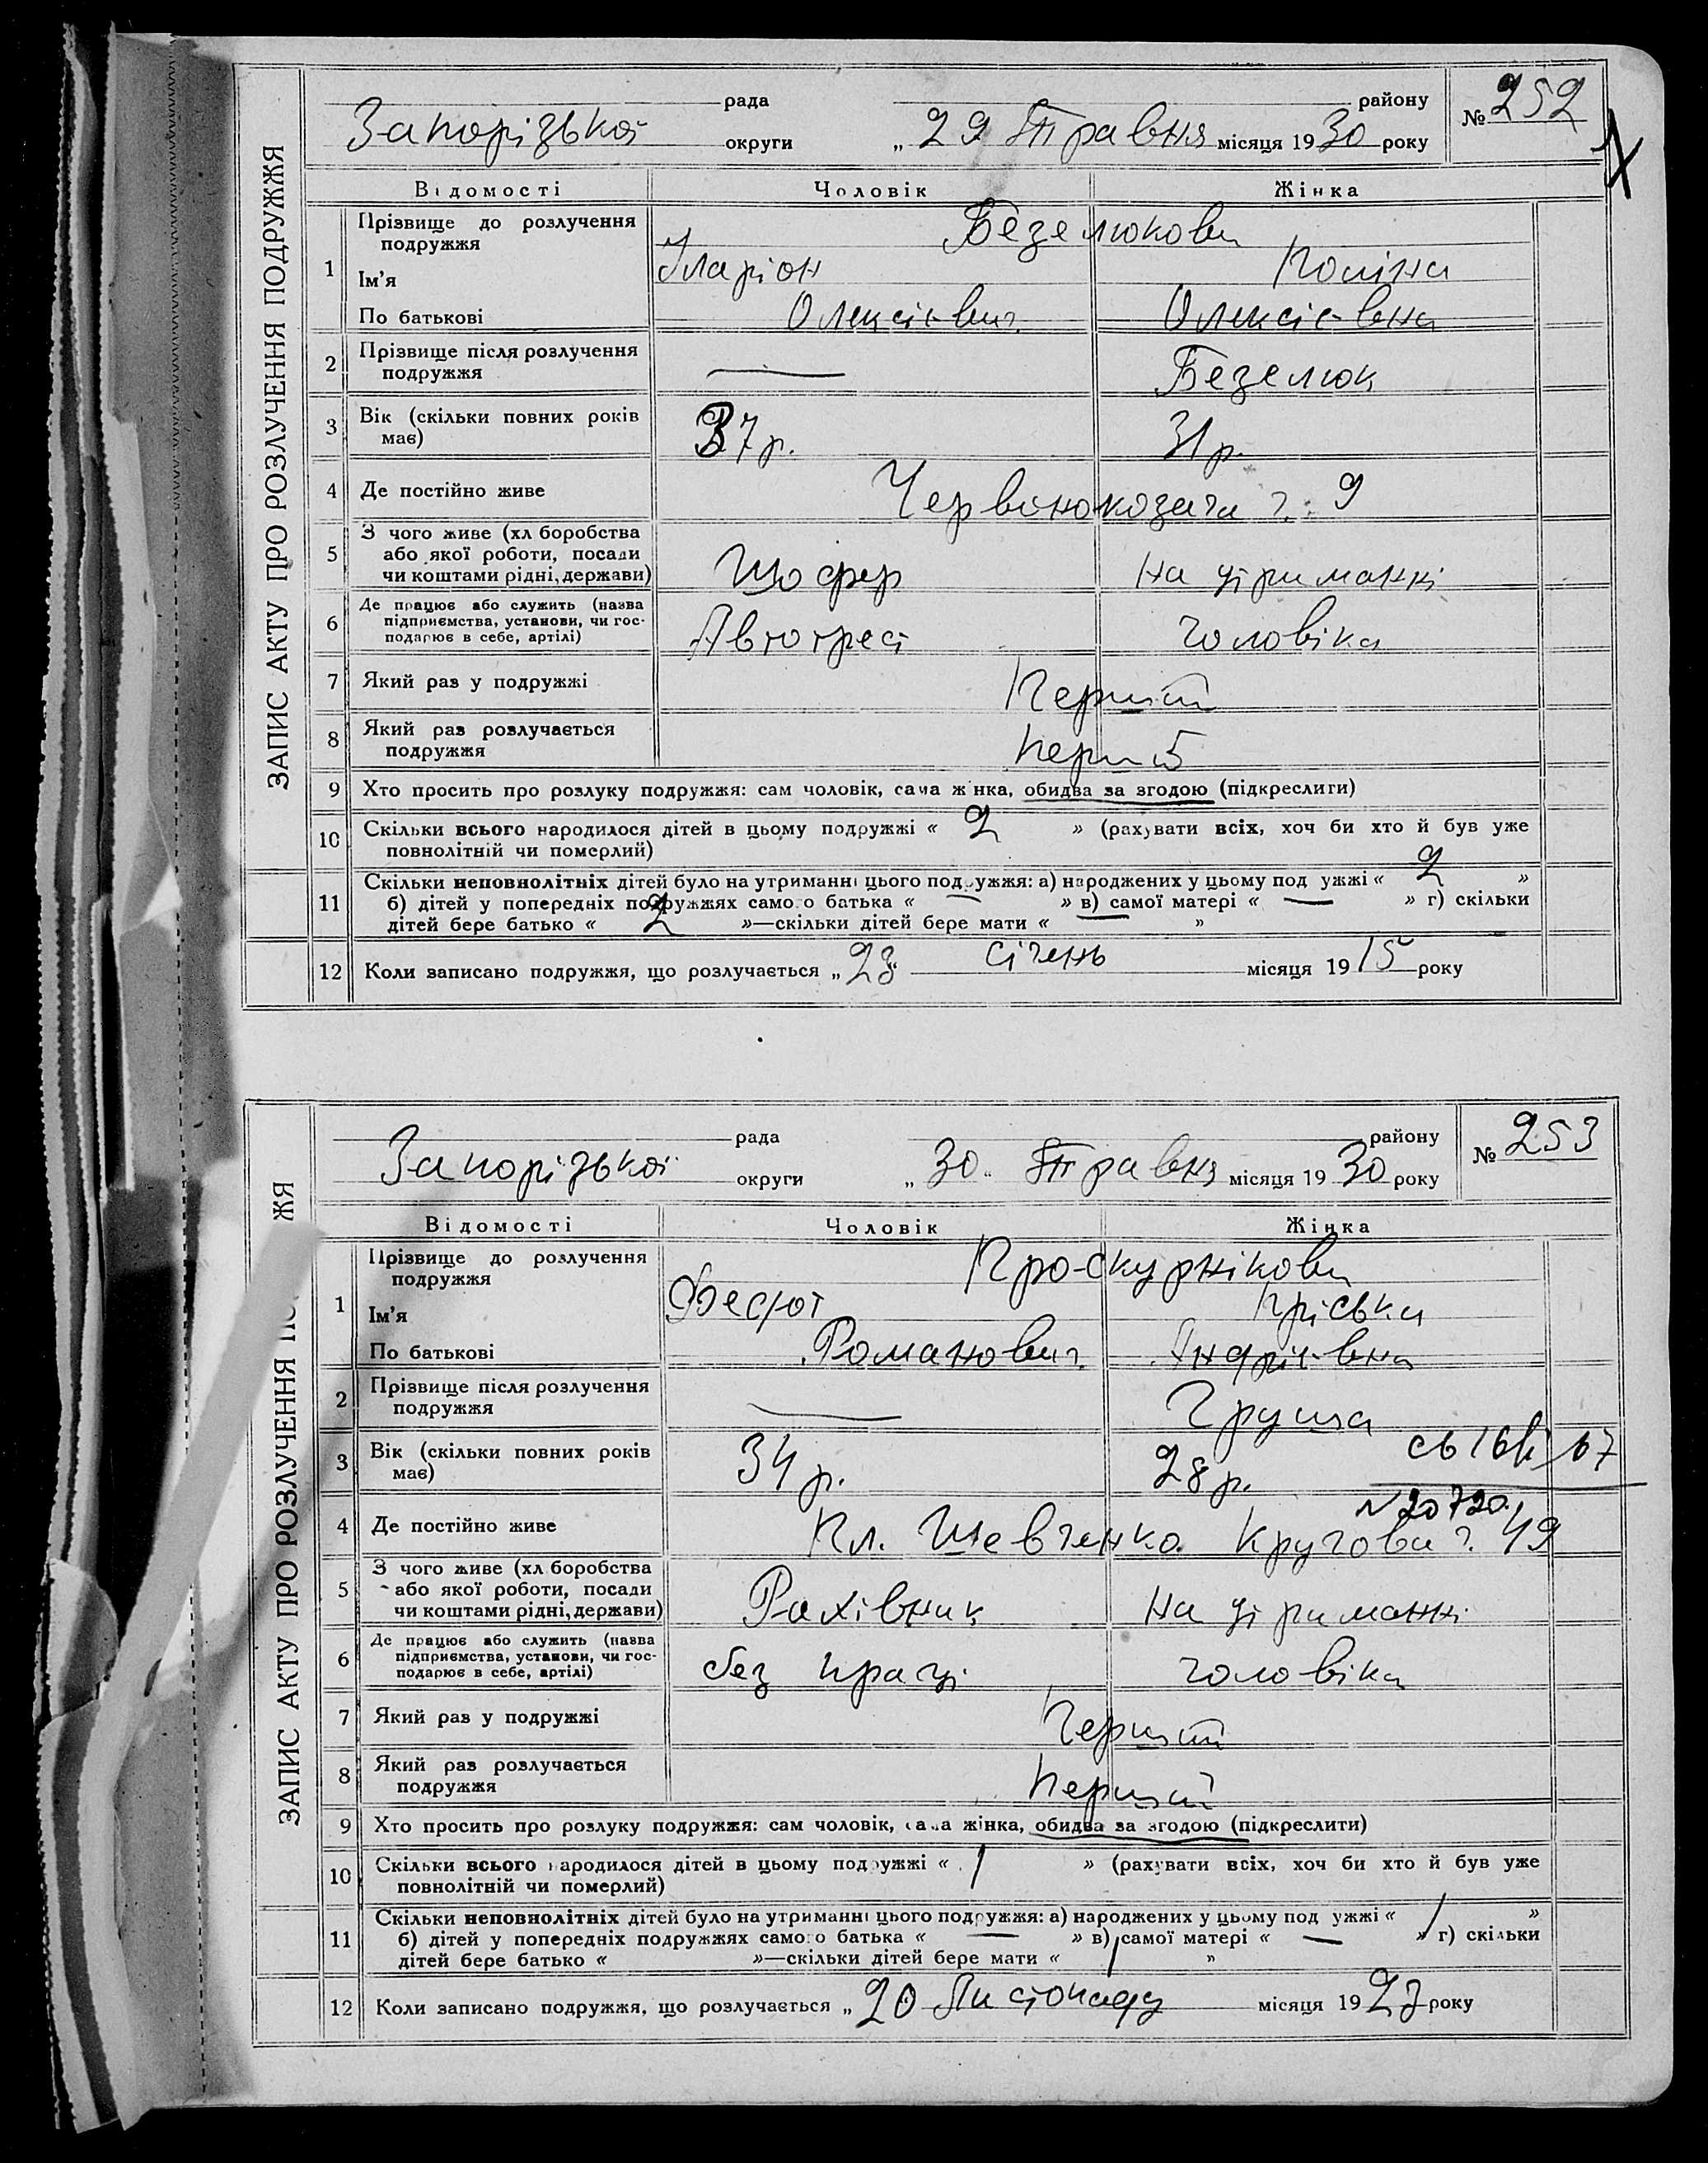 ЗАПИС АКТУ ПРО РОЗЛУЧЕННЯ ПОДРУЖЖЯ
рада району № 252
Запорізької округи „ 29 Травня місяця 1930 року
Відомості Чоловік Жінка
1 Прізвище до розлучення подружжя Безелюкови
Ім’я Іларіон Поліна
По батькові Олексієвич Олексієвна
2 Прізвище після розлучення подружжя — Безелюк
3 Вік (скільки повних років має) 37 р. 31 р.
4 Де постійно живе Червонокозача ч. 9
5 З чого живе (хл боробства
або якої роботи, посади
чи коштами рідні, держави) Шофер на утриманні
6 Де працює або служить (назва
підприємства, установи, чи гос-
подарює в себе, артілі) Автотрест чоловіка
7 Який раз у подружжі Перший
8 Який раз розлучається подружжя Перший
9 Хто просить про розлуку подружжя: сам чоловік, сама жінка, обидва за згодою (підкреслити)
10 Скільки всього народилося дітей в цьому подружжі « 2 » (рахувати всіх, хоч би хто й був уже
повнолітній чи померлий)
11 Скільки неповнолітніх дітей було на утриманні цього подружжя: а) народжених у цьому под ужжі « 2 »
б) дітей у попередніх подружжях самого батька « — » в) самої матері « — » г) скільки
дітей бере батько « 2 »—скільки дітей бере мати « »
12 Коли записано подружжя, що розлучається „ 23 “ січень місяця 1915 року
ЗАПИС АКТУ ПРО РОЗЛУЧЕННЯ ПО ЖЯ
рада району № 253
Запорізької округи „ 30 “ Травня місяця 1930 року
Відомості Чоловік Жінка
1 Прізвище до розлучення подружжя Проскурнікови
Ім’я Феєрот Пріська
По батькові Романович Андрієвна
2 Прізвище після розлучення подружжя — Груша
3 Вік (скільки повних років має) 34 р. 28 р.
№ 20720
4 Де постійно живе Пл. Шевченко Кругова ч. 49
5 З чого живе (хл боробства
або якої роботи, посади
чи коштами рідні, держави) Рахівник на утриманні
6 Де працює або служить (назва
підприємства, установи, чи гос-
подарює в себе, артілі) без праці чоловіка
7 Який раз у подружжі Перший
8 Який раз розлучається подружжя Перший
9 Хто просить про розлуку подружжя: сам чоловік, сама жінка, обидва за згодою (підкреслити)
10 Скільки всього народилося дітей в цьому подружжі « 1 » (рахувати всіх, хоч би хто й був уже
повнолітній чи померлий)
11 Скільки неповнолітніх дітей було на утриманні цього подружжя: а) народжених у цьому под ужжі « 1 »
б) дітей у попередніх подружжях самого батька « — » в) самої матері « — » г) скільки
дітей бере батько « »—скільки дітей бере мати « 1 »
12 Коли записано подружжя, що розлучається „ 20 “ Листопаду місяця 1927 року